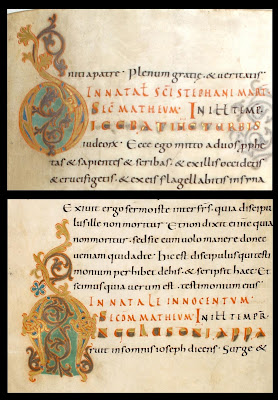 niti apatre. Plenum gratię, & veritatis
IN NATAL SCI STEPHANI MARI
SEC MATHEUM. IN ILL TEMP
DICEBAT IHS TURBIS
iudeorx Ecce ego mitto ad uos pphe
tas & sapientes & scribas. & ex illis occidetis
& crucifigetis. & ex eis flagellabitis insyna
Exiuit ergo sermo iste inter frs. quia discipu
lus ille non moritur. Et non dixit ei ihs quia
non moritur. sed sic eum uolo manere donec
ueniam quid ad te. Hic est discipulus qui testi
monium perhib& de his. & scripsit haec. Et
scimus quia uerum est. testimonium eius
IN NATALE INNOCENTUM.
SECDM MATHEUM. IN ILL TEMPR.
ANGELUS DNI APPA
ruit in somnis ioseph dicens. Surge &